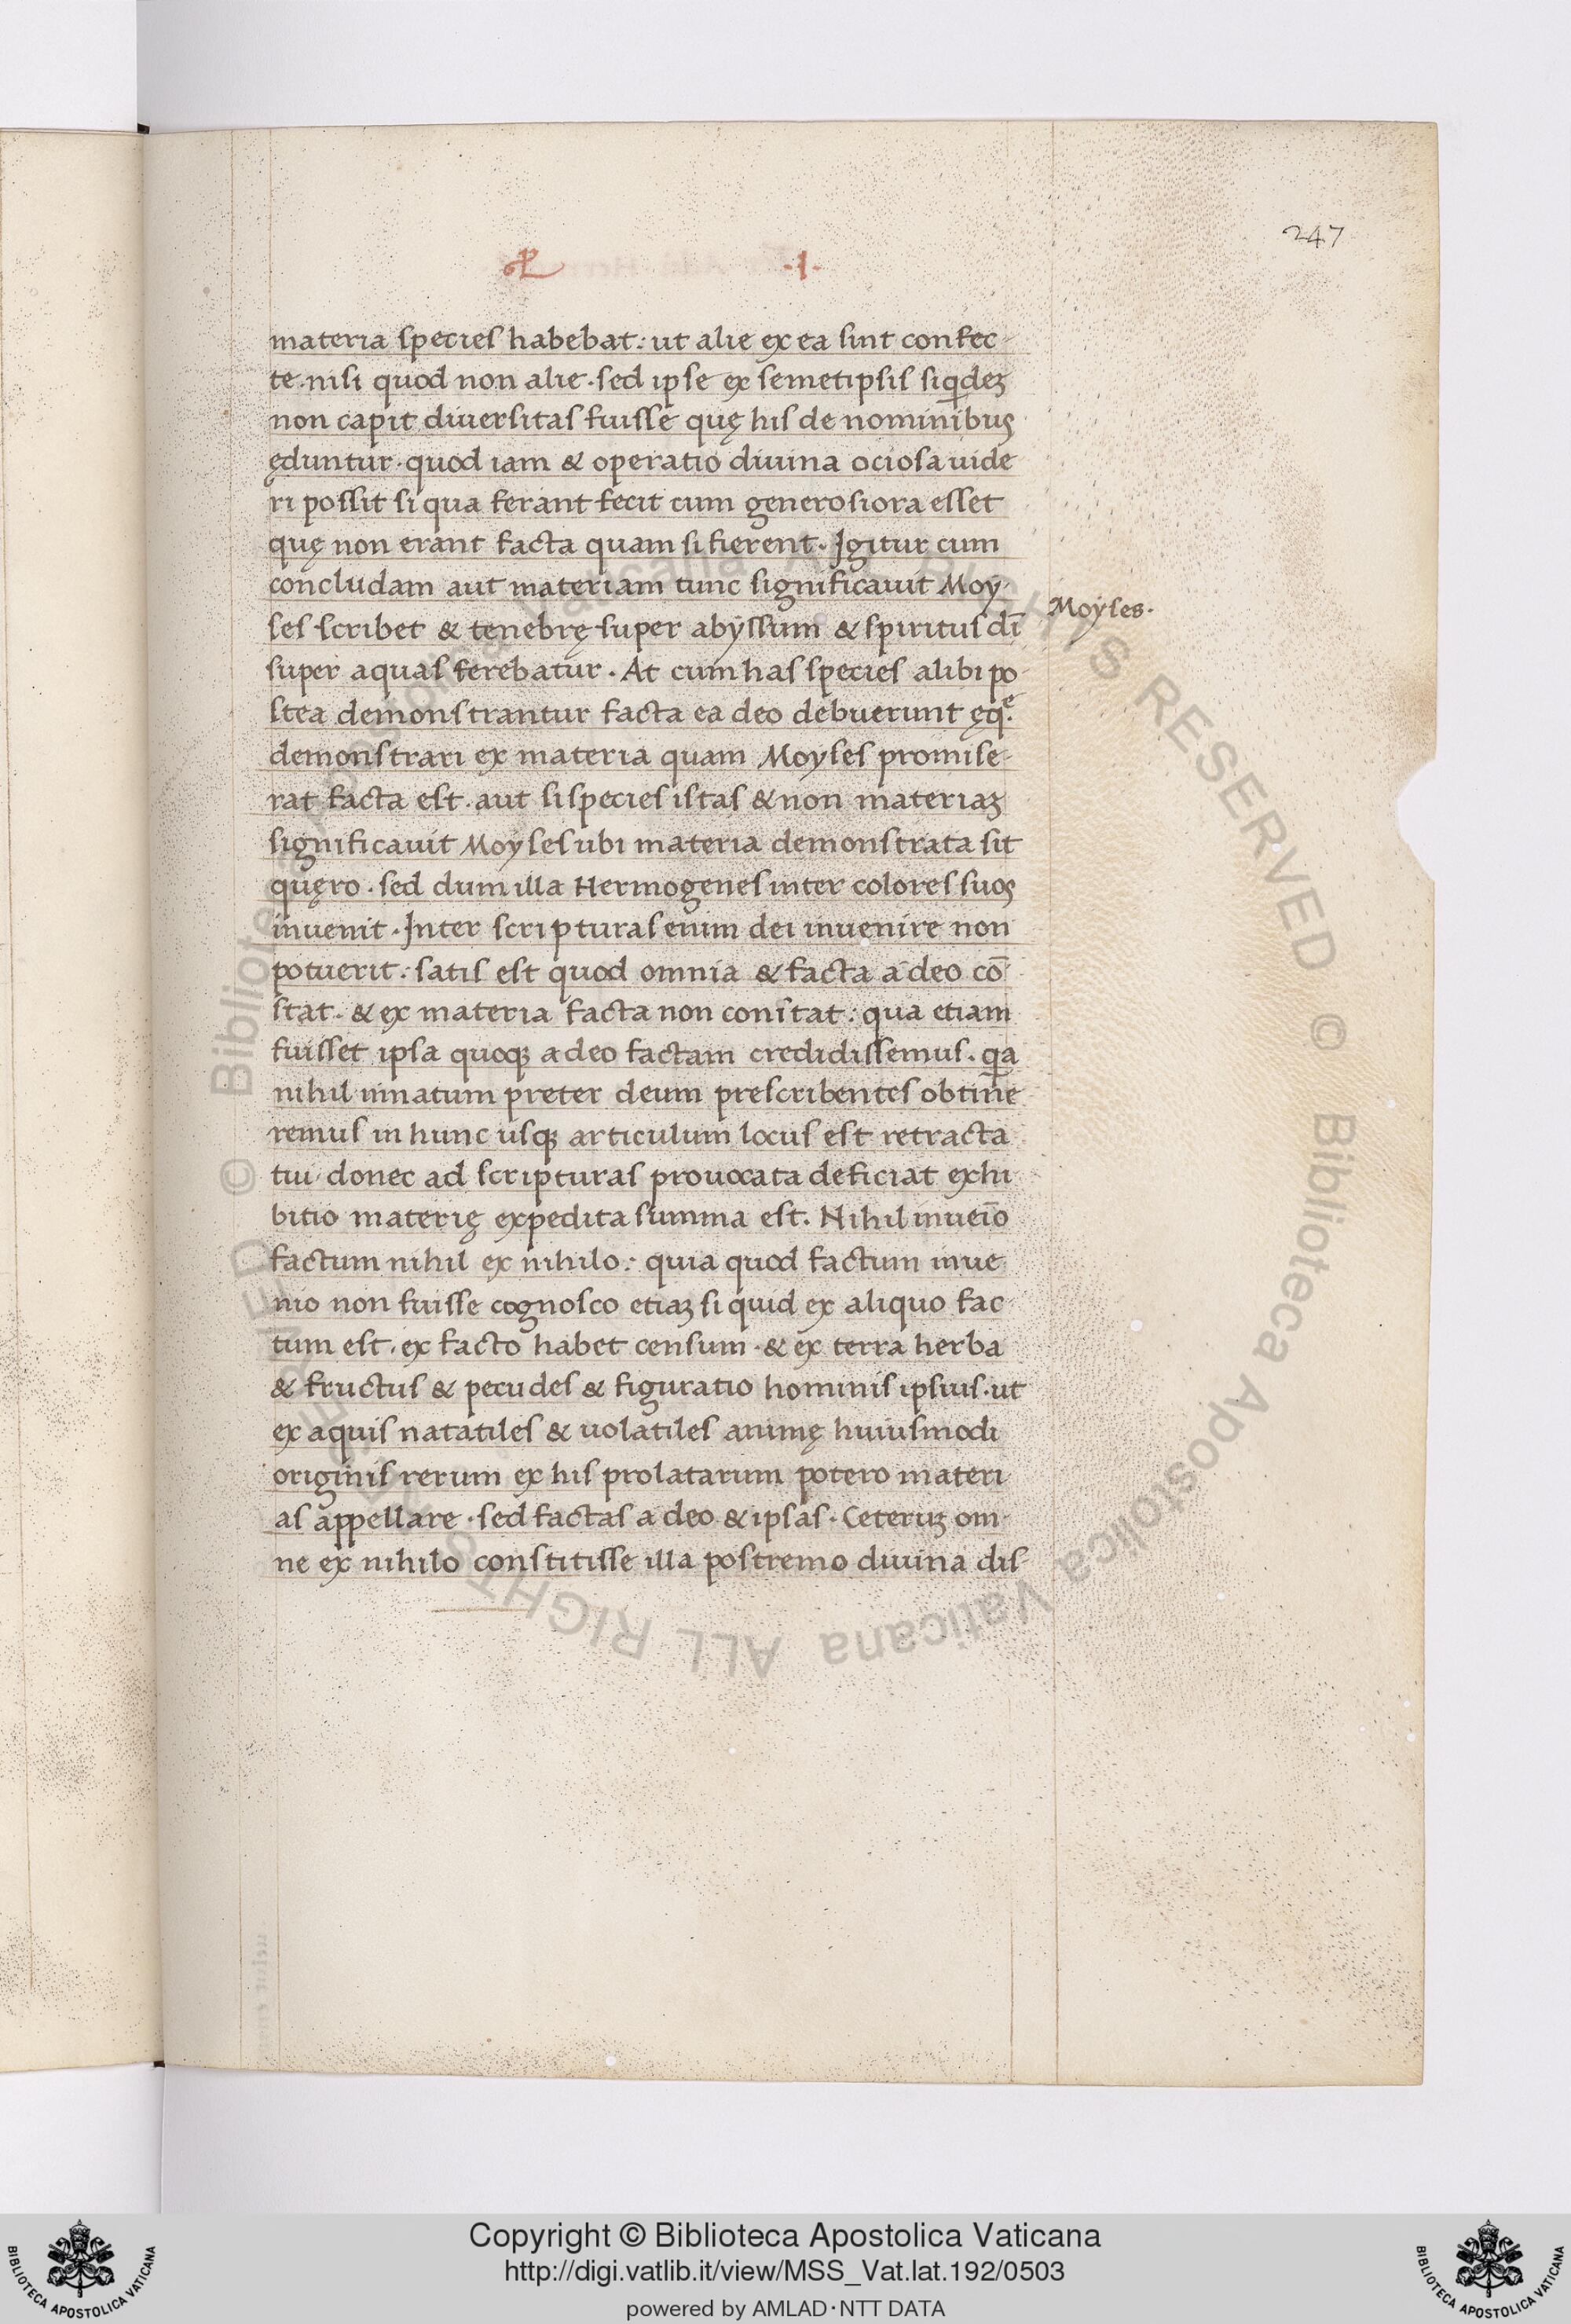 247
·I·
materia species habebat: ut alie ex ea sint confec-
te. nisi quod non alie. sed ipse ex semetipsis siqͥdeꝫ
non capit diuersitas fuisse quę his de nominibus
ęduntur. quod iam & operatio diuina ociosa uide
ri possit si qua ferant fecit cum generosiora esset
quę non erant facta quam si fierent. Igitur cum
concludam aut materiam tunc significauit Moy-
ses scribet & tenebrę super abyssum & spiritus dī
super aquas ferebatur. At cum has species alibi po
stea demonstrantur facta ea deo debuerunt ęq͛
demonstrari ex materia quam Moyses promise-
rat facta est. aut si species istas & non materiaꝫ
significauit Moyses ubi materia demonstrata sit
quęro. sed dum illa Hermogenes inter colores suos
inuenit. Inter scripturas enim dei inuenire non
potuerit: satis est quod omnia & facta a deo cō
stat. & ex materia facta non constat: qua etiam
fuisset ipsa quoqꝫ a deo factam credidissemus. qͥa
nihil innatum preter deum prescribentes obtine
remus in hunc usqꝫ articulum locus est retracta
tui donec ad scripturas prouocata deficiat exhi
bitio materię expedita summa est. Nihil inueīo
factum nihil ex nihilo: quia quod factum inue
nio non fuisse cognosco etiaꝫ si quid ex aliquo fac
tum est. ex facto habet censum. & ex terra herba
& fructus & pecudes & figuratio hominis ipsius. ut
ex aquis natatiles & uolatiles animę huiusmodi
originis rerum ex his prolatarum potero materi
as appellare. sed factas a deo & ipsas. Ceteruꝫ om-
ne ex nihilo constitisse illa postremo diuina dis-
Moyses.
© Biblioteca Apostolica Vaticana ALL RIGHTS RESERVED © Biblioteca Apostolica Vaticana ALL RIGHTS RESERVED
Copyright © Biblioteca Apostolica Vaticana
http://digi.vatlib.it/view/MSS_Vat.lat.192/0503
powered by AMLAD·NTT DATA
BIBLIOTECA APOSTOLICA VATICANA
BIBLIOTECA APOSTOLICA VATICANA